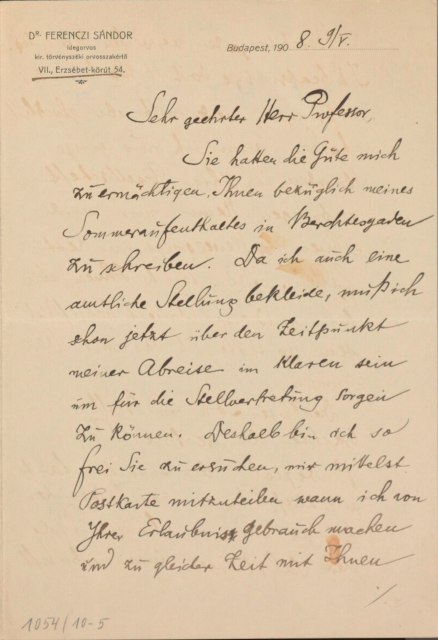 Dr. FERENCZI SÁNDOR
idegorvos
kir. törvényszéki orvosszakértő
VII., Erzsébet-körút 54.
Budapest, 190 8. 9/V.
Sehr geehrter Herr Professor,
Sie hatten die Güte mich
zu ermächtigen, Ihnen bezüglich meines
Sommeraufenthaltes in Berchtesgaden
zu schreiben. Da ich auch eine
amtliche Stellung bekleide, muß ich
schon jetzt über den Zeitpunkt
meiner Abreise im Klaren sein
um für die Stellvertretung sorgen
zu können. Deshalb bin ich so
frei Sie zu ersuchen, mir mittelst
Postkarte mitzuteilen wann ich von
Ihrer Erlaubnis Gebrauch machen
und zu gleicher Zeit mit Ihnen
./.
1054/10-5